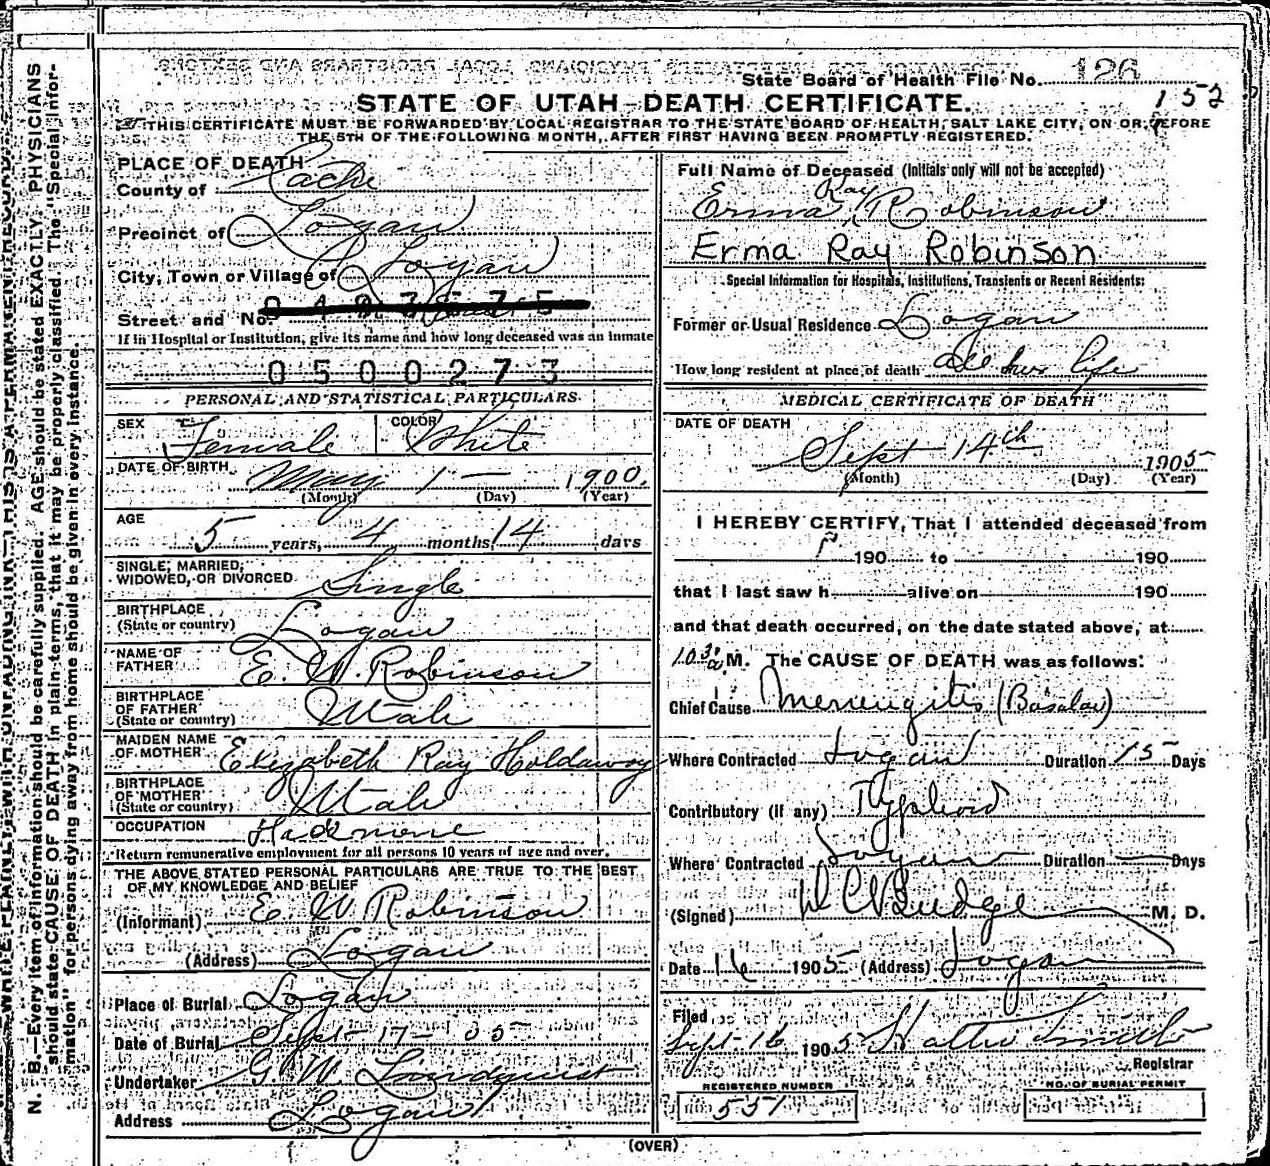 State Board of Health File No. 126
152
STATE OF UTAH—DEATH CERTIFICATE.
THIS CERTIFICATE MUST BE FORWARDED BY LOCAL REGISTRAR TO THE STATE BOARD OF HEALTH, SALT LAKE CITY, ON OR BEFORE
THE 5TH OF THE FOLLOWING MONTH, AFTER FIRST HAVING BEEN PROMPTLY REGISTERED.
PLACE OF DEATH
County of Cache
Precinct of Logan
City, Town or Village of Logan
Street and No.
If in Hospital or Institution, give its name and how long deceased was an inmate
0500273
PERSONAL AND STATISTICAL PARTICULARS.
SEX Female COLOR White
DATE OF BIRTH May 1 — 1900.
(Month) (Day) (Year)
AGE
5 years, 4 months 14 days
SINGLE, MARRIED,
WIDOWED, OR DIVORCED Single
BIRTHPLACE
(State or country) Logan
NAME OF
FATHER E. W. Robinson
BIRTHPLACE
OF FATHER
(State or country) Utah
MAIDEN NAME
OF MOTHER Elizabeth Ray Holdaway
BIRTHPLACE
OF MOTHER
(State or country) Utah
OCCUPATION Had none
Return remunerative employment for all persons 10 years of age and over.
THE ABOVE STATED PERSONAL PARTICULARS ARE TRUE TO THE BEST
OF MY KNOWLEDGE AND BELIEF
(Informant) E. W. Robinson
(Address) Logan
Place of Burial Logan
Date of Burial Sept - 17 - 05
Undertaker G. W. Lindquist
Address Logan
Full Name of Deceased (Initials only will not be accepted)
Erma Ray Robinson
Erma Ray Robinson
Special Information for Hospitals, Institutions, Transients or Recent Residents:
Former or Usual Residence Logan
How long resident at place of death All her life
MEDICAL CERTIFICATE OF DEATH
DATE OF DEATH
Sept 14th 1905
(Month) (Day) (Year)
I HEREBY CERTIFY, That I attended deceased from
190 to 190
that I last saw h alive on 190
and that death occurred, on the date stated above, at
10 30 a M. The CAUSE OF DEATH was as follows:
Chief Cause Meningitis (Basalar)
Where Contracted Logan Duration 15 Days
Contributory (if any) Typhoid
Where Contracted Logan Duration — Days
(Signed) D C Budge M. D.
Date 16 1905 (Address) Logan
Filed
Sept 16 1905 Hattie Smith
Registrar
REGISTERED NUMBER
551
NO. OF BURIAL PERMIT
(OVER)
N. B.—Every item of information should be carefully supplied. AGE should be stated EXACTLY. PHYSICIANS
should state CAUSE OF DEATH in plain terms, that it may be properly classified. The "Special Infor-
mation" for persons dying away from home should be given in every instance.